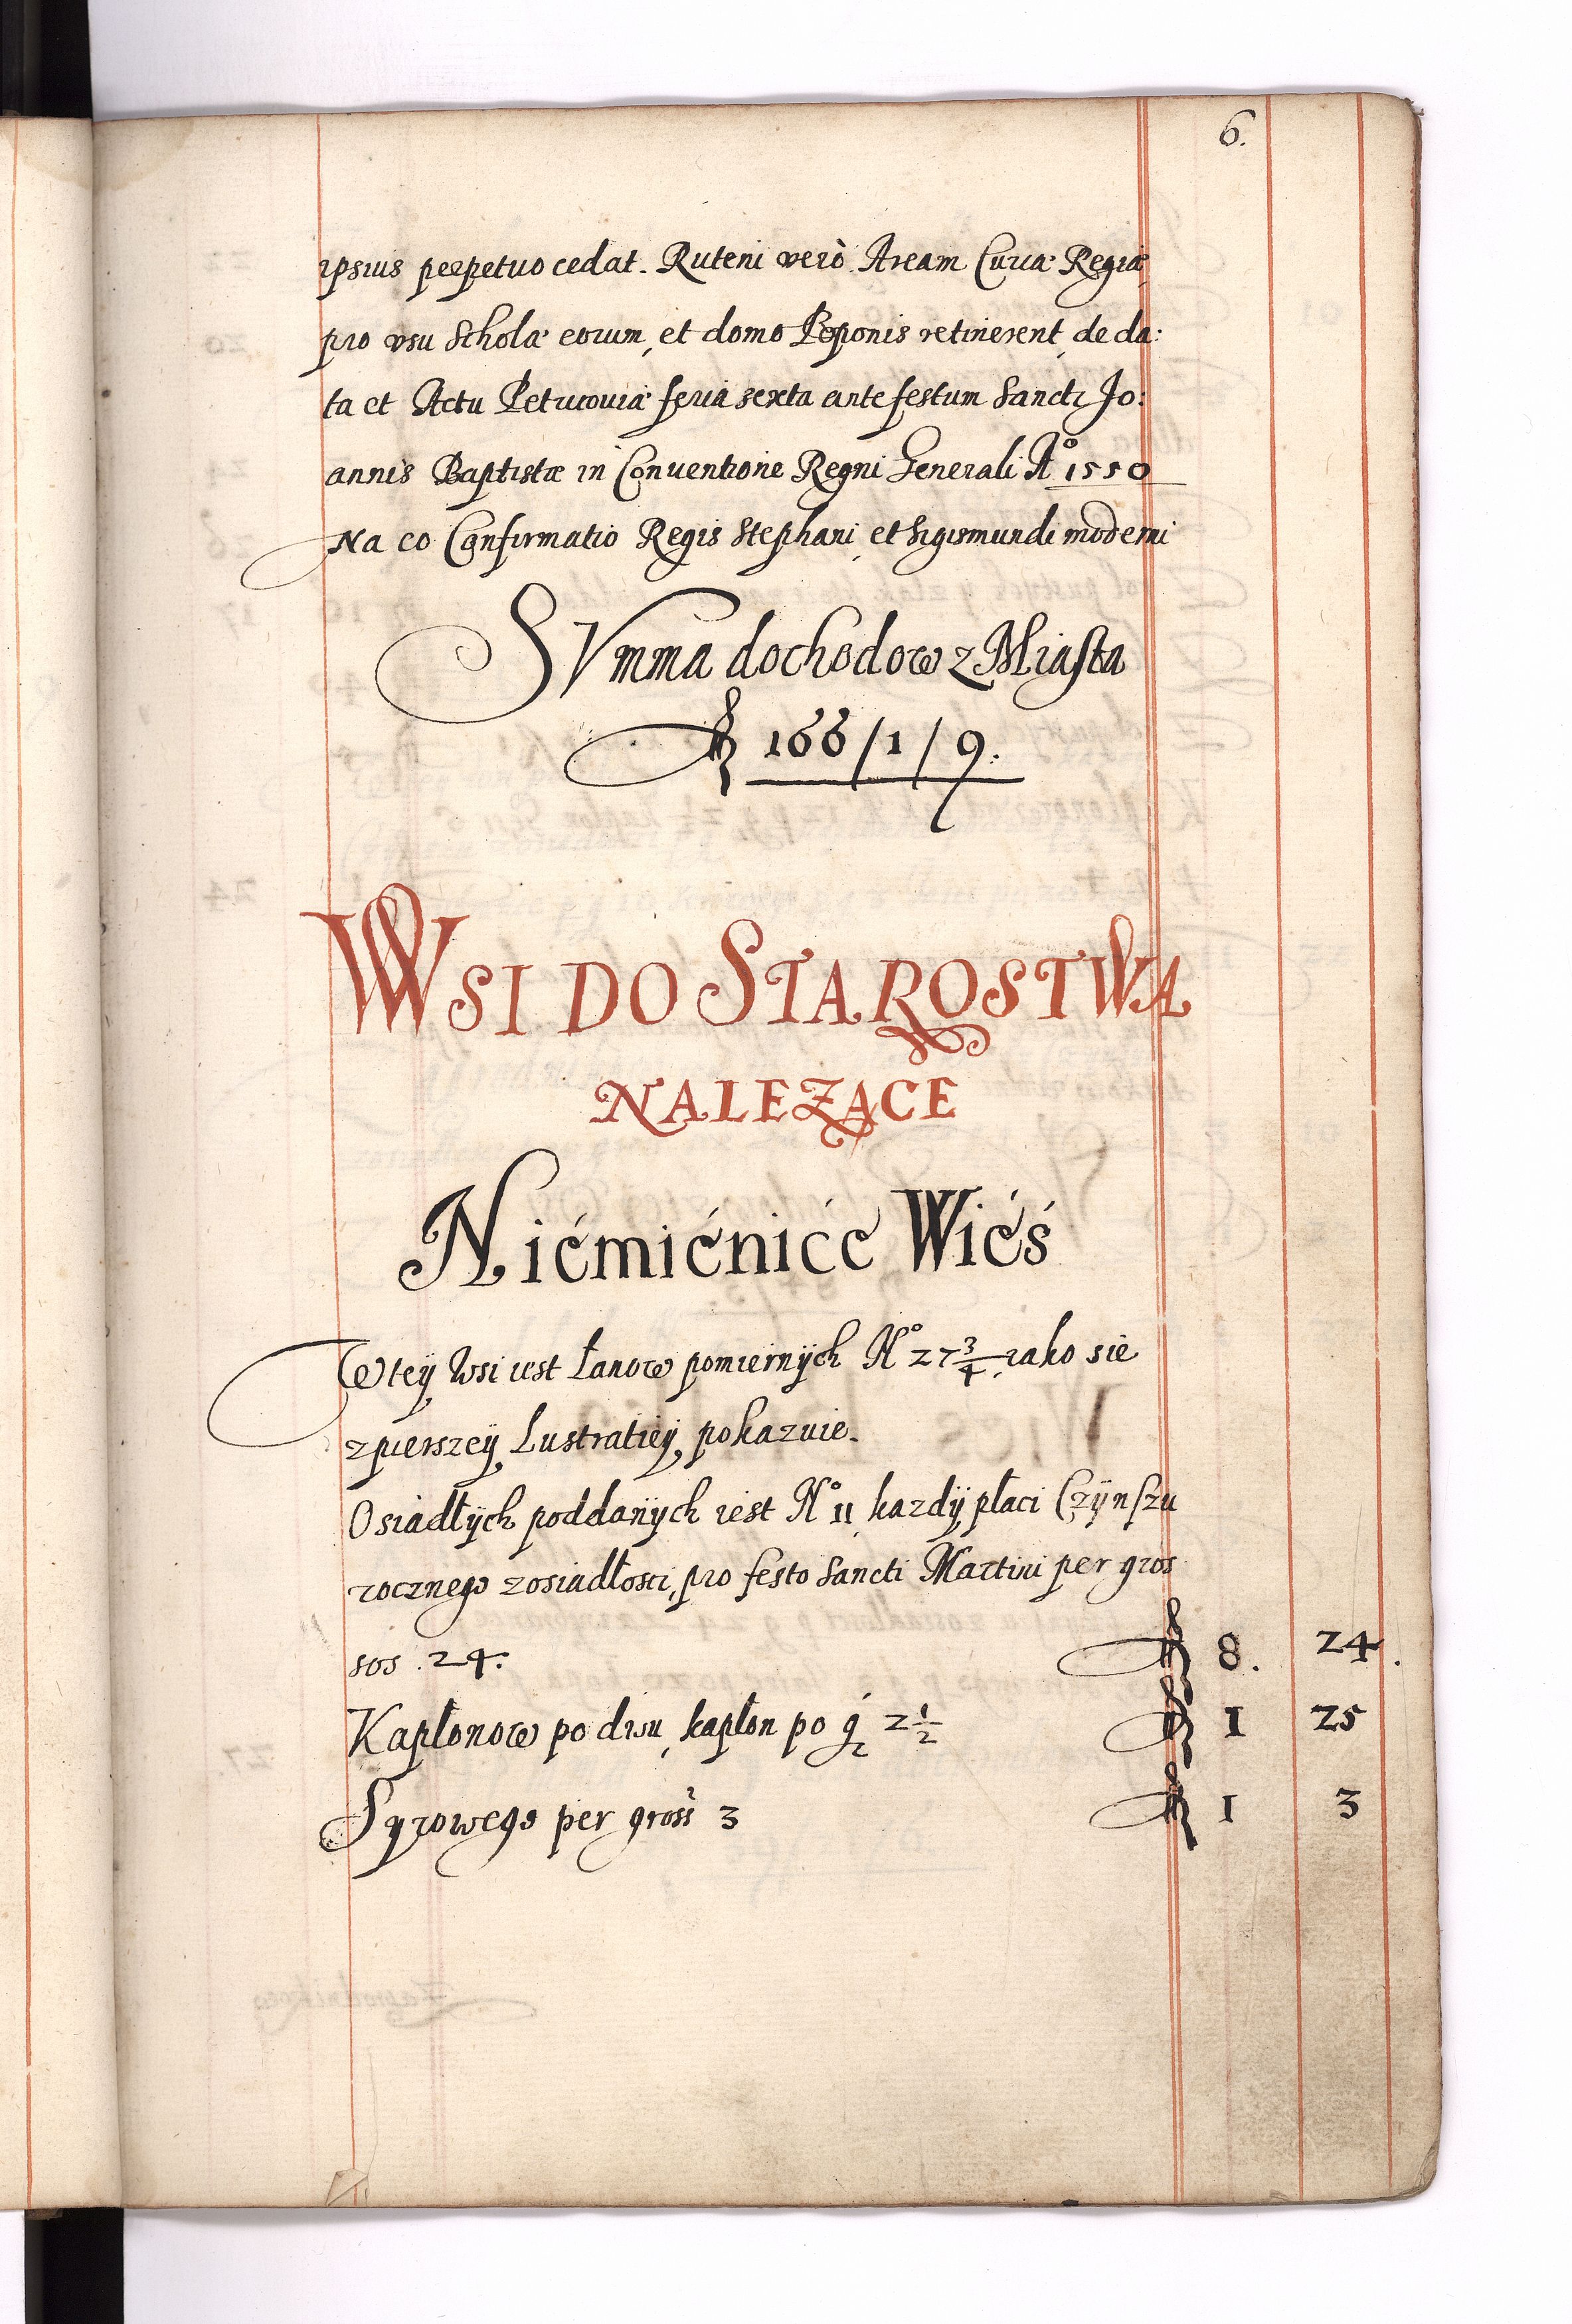 6.
ipsius perpetuo cedat. Ruteni verò Aream Curiæ Regiæ
pro vsu Scholæ eorum, et domo Poponis retinerent, de da:
ta et Actu Petricoviæ feria sexta ante festum Sancti Jo:
annis Baptistæ in Conventione Regni Generali Aº 1550
Na co Confirmatio Regis Stephani, et Sigismundi moderni
SVmma dochodow z Miasta
166/1/9.
WSI DO STAROSTWA
NALEZĄCE
Niémiénicé Wiéś
W teÿ Wsi iest Łanow pomiernÿch Nº 27 3/4 iako sie
z pierszeÿ Lustratieÿ pokazuie.
Osiadłÿch poddanÿch iest Nº 11 kazdÿ płaci Czÿnszu
rocznego z osiadłosci, pro festo Sancti Martini per gros
sos .24. 8. 24.
Kapłonow po dwu, kapłon po g 2 1/2 1 25
Syrowego per gross 3 1 3